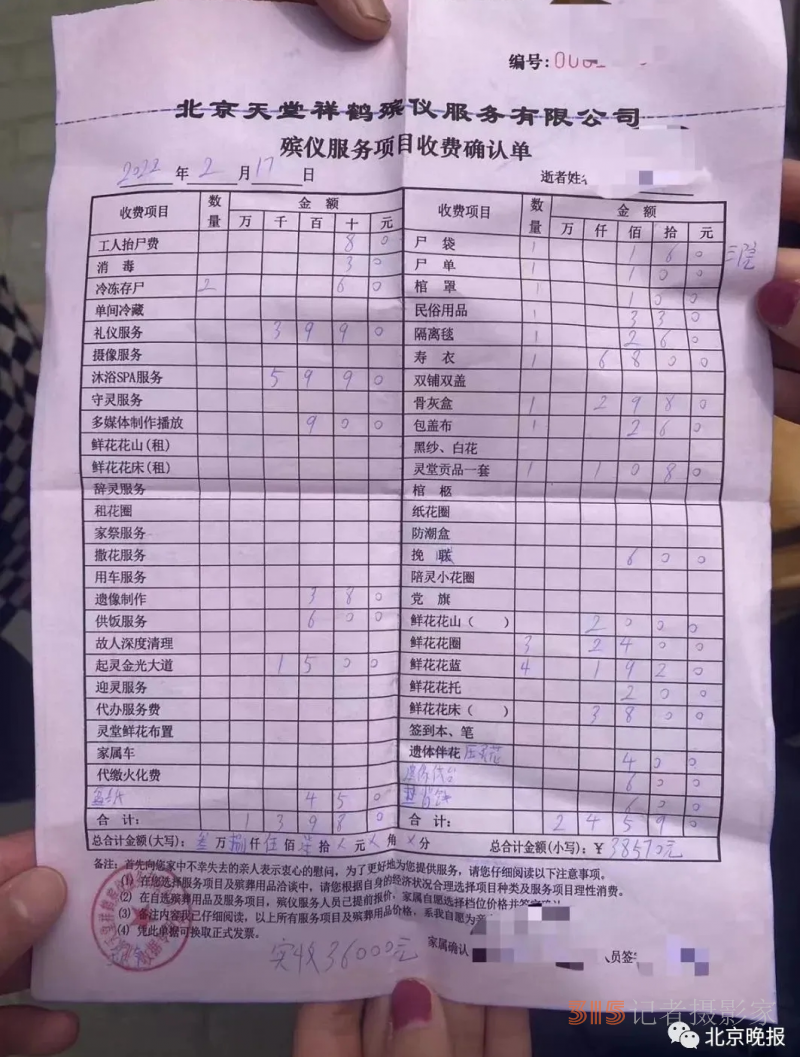 编号:
北京天堂祥鹤殡仪服务有限公司
殡仪服务项目收费确认单
2022 年 2 月 17 日 逝者姓
收费项目 数量 金额 万 千 百 十 元
工人抬尸费 8 0
消毒 3 0
冷冻存尸 2 6 0
单间冷藏
礼仪服务 3 9 9 0
摄像服务
沐浴SPA服务 5 9 9 0
守灵服务
多媒体制作播放 9 0 0
鲜花花山(租)
鲜花花床(租)
辞灵服务
租花圈
家祭服务
撒花服务
用车服务
遗像制作 3 8 0
供饭服务 6 0 0
故人深度清理
起灵金光大道 1 5 0 0
迎灵服务
代办服务费
灵堂鲜花布置
家属车
代缴火化费
4 5 0
合计: 1 3 9 8 0
收费项目 数量 金额 万 仟 佰 拾 元
尸袋 1 1 6 0 三院
尸单 1 1 0 0
棺罩 1 1 0 0
民俗用品 1 3 3 0
隔离毯 1 2 6 0
寿衣 1 6 8 0 0
双铺双盖
骨灰盒 1 2 9 8 0
包盖布 1 2 6 0
黑纱、白花
灵堂贡品一套 1 1 0 8 0
棺柩
纸花圈
防潮盒
挽联 6 0 0
陪灵小花圈
党旗
鲜花花山( ) 2 0 0 0
鲜花花圈 3 2 4 0 0
鲜花花蓝 4 1 9 2 0
鲜花花托 2 0 0
鲜花花床( ) 3 8 0 0
签到本、笔
遗体伴花 4 0 0
6 0 0
6 0 0
合计: 2 4 5 9 0
总合计金额(大写): 叁 万 捌 仟 伍 佰 柒 拾 元 角 分 总合计金额(小写): ¥ 38570元
备注: 首先向您家中不幸失去的亲人表示衷心的慰问,为了更好地为您提供服务,请您仔细阅读以下注意事项。
(1) 在您选择服务项目及殡葬用品洽谈中,请您根据自身的经济状况合理选择项目种类及服务项目理性消费。
(2) 在自选殡葬用品及服务项目,殡仪服务人员已提前报价,家属自愿选择档位价格并
(3) 备注内容我已仔细阅读,以上所有服务项目及殡葬用品价格,系我自愿为
(4) 凭此单据可换取正式发票。
实收36000元
家属确认 员签
315记者摄影家
北京晚报